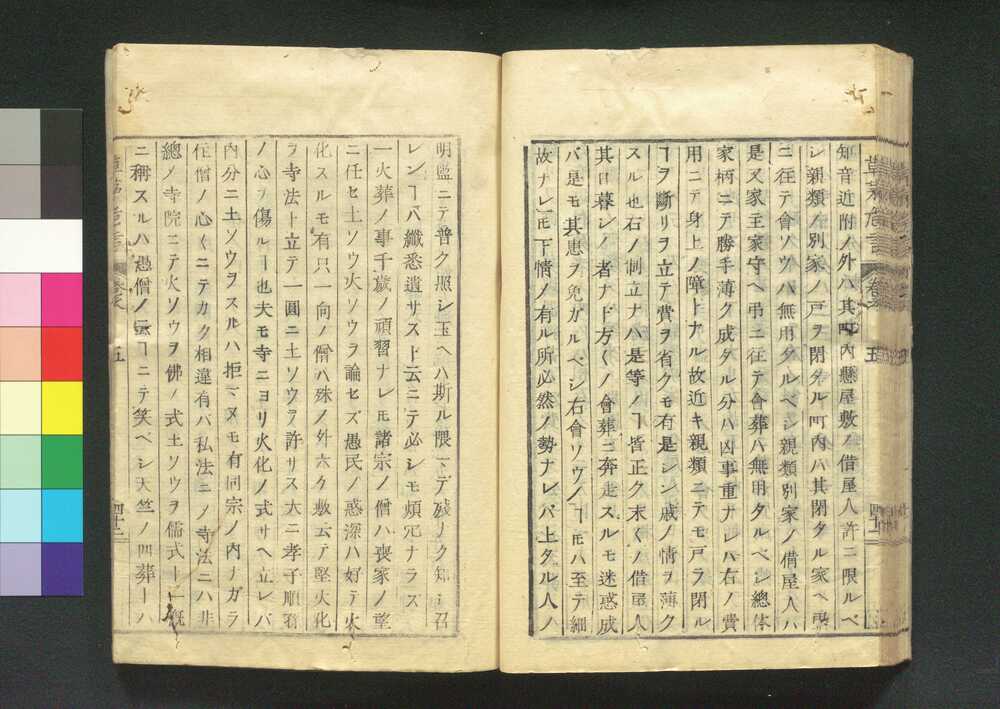 知音近附ノ外ハ其町内懸屋敷ノ借屋人許ニ限ルベ
シ親類ノ別家ノ戸ヲ閉タル町内ハ其閉タル家ヘ
ニ徃テ會ソウハ無用タルベシ親類別家ノ借屋人ハ
是又家主家守ヘ弔ニ徃テ會葬ハ無用タルベシ總体
家柄ニテ勝手薄ク成タル分ハ凶事重ナレハ右ノ費
用ニテ身上ノ障トナル故近キ親類ニテモ戸ヲ閉ル
ヿヲ斷リヲ立テ費ヲ省クモ有是シン戚ノ情ヲ薄ク
スル也右ノ制立ナハ是等ノヿ皆正ク末〱ノ借屋人
其日暮シノ者ナド方〱ノ會葬ニ奔走スルモ迷惑成
バ是モ其患ヲ免ガルベシ右會ソウノヿ𪜈ハ至テ細
故ナレ𪜈下情ノ有ル所必然ノ勢ナレバ上タル人ノ
草茅危言 卷之 五 四十
明監ニテ普ク照シ玉ヘハ斯ル隈マデ殘ノク知シ召
レンヿハ纖悉遺サスト云ニテ必シモ煩冗ナラズ
一火葬ノ事千歳ノ頑習ナレ𪜈諸宗ノ僧ハ喪家ノ望
ニ任セ土ソウ火ソウヲ論セズ愚民ノ惑深ハ好テ火
化スルモ有只一向ノ僧ハ殊ノ外六ケ敷云テ堅火化
ヲ寺法ト立テ一圓ニ土ソウヲ許サス大ニ孝子順孫
ノ心ヲ傷ルヿ也夫モ寺ニヨリ火化ノ式サヘ立レバ
内分ニ土ソウヲスルハ拒マヌモ有同宗ノ内ナガラ
住僧ノ心〱ニテカク相違有バ私法ニノ寺法ニハ非
總ノ寺院ニテ火ソウヲ佛ノ式土ソウヲ儒式ト一概
ニ稱スルハ愚僧ノ云ヿニテ笑ベシ天竺ノ四葬ーハ
草茅危言 卷之 五 四十一